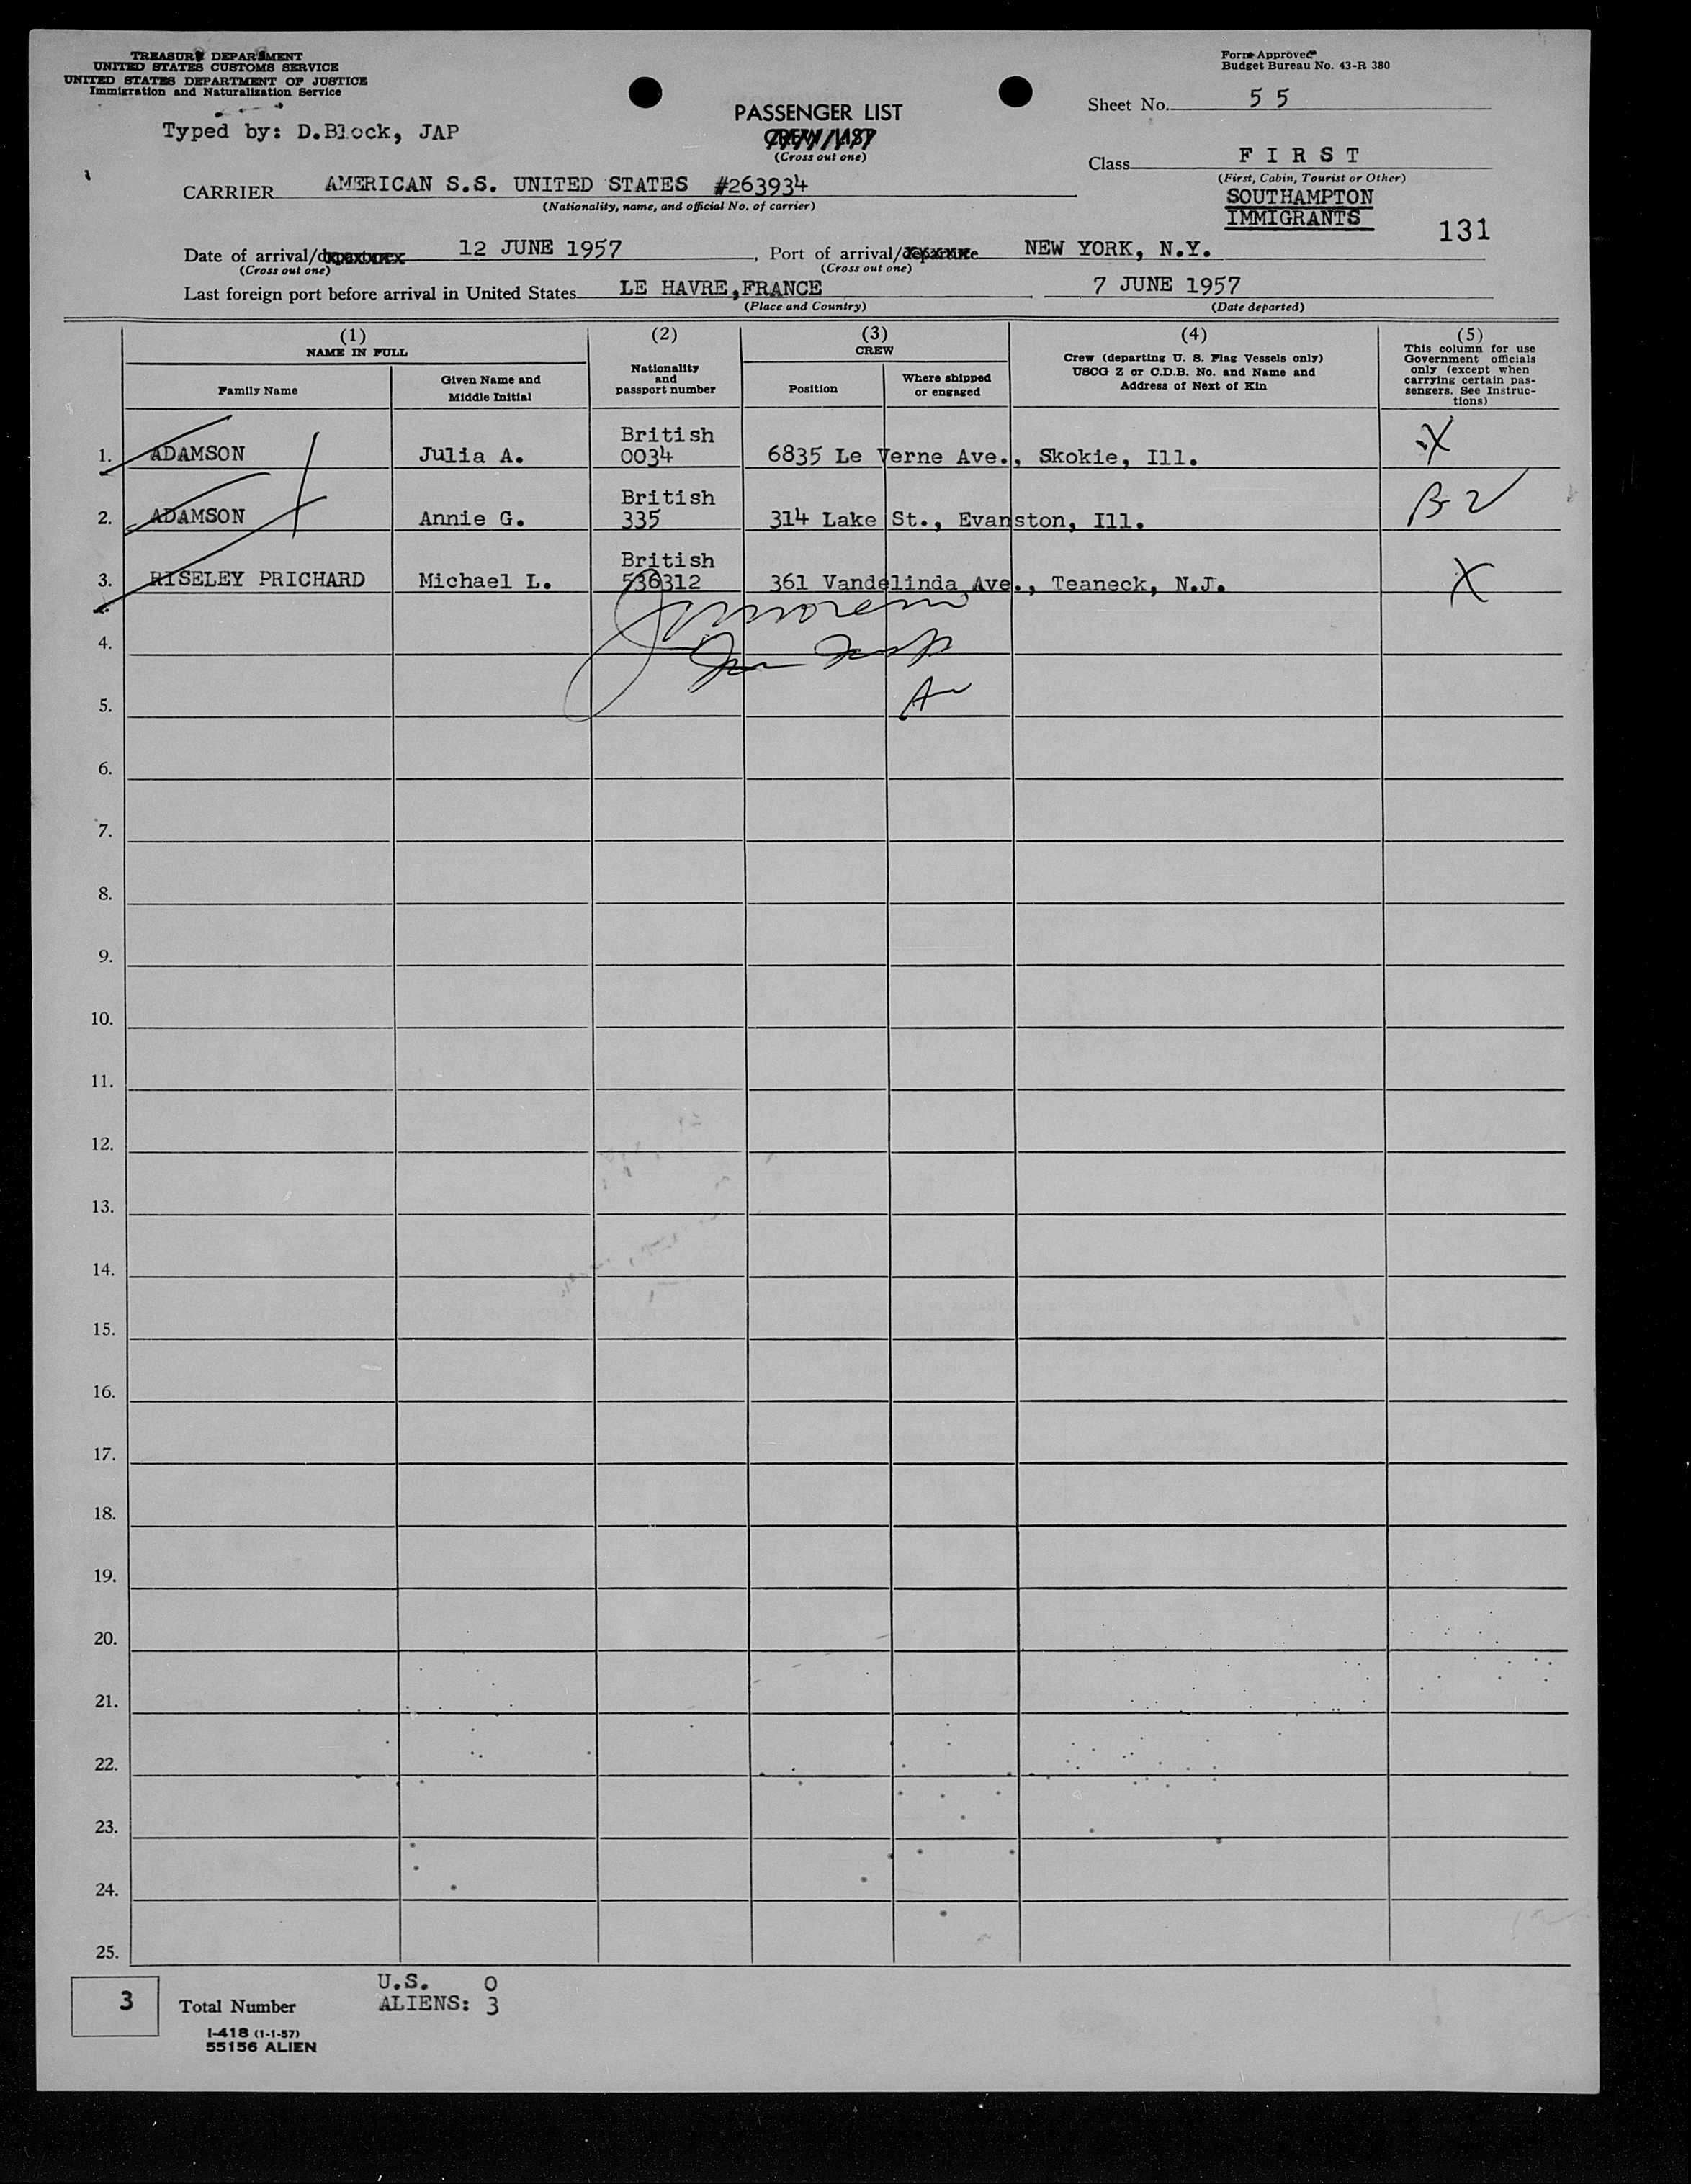 TREASURY DEPARTMENT
UNITED STATES CUSTOMS SERVICE
UNITED STATES DEPARTMENT OF JUSTICE
Immigration and Naturalization Service
Form Approved
Budget Bureau No. 43-R 380
Typed by: D.Block, JAP
PASSENGER LIST
CREW LIST
(Cross out one)
Sheet No. 5 5
Class F I R S T
(First, Cabin, Tourist or Other)
SOUTHAMPTON
IMMIGRANTS
131
CARRIER AMERICAN S.S. UNITED STATES #263934
(Nationality, name, and official No. of carrier)
Date of arrival/departure 12 JUNE 1957, Port of arrival/departure NEW YORK, N.Y.
(Cross out one) (Cross out one)
Last foreign port before arrival in United States LE HAVRE,FRANCE 7 JUNE 1957
(Place and Country) (Date departed)
(1) (2) (3) (4) (5)
NAME IN FULL
Family Name
Given Name and
Middle Initial
Nationality
and
passport number
CREW
Position
Where shipped
or engaged
Crew (departing U. S. Flag Vessels only)
USCG Z or C.D.B. No. and Name and
Address of Next of Kin
This column for use
Government officials
only (except when
carrying certain pas-
sengers. See Instruc-
tions)
British
1. ADAMSON Julia A. 0034 6835 Le Verne Ave., Skokie, Ill. X
British
2. ADAMSON Annie G. 335 314 Lake St., Evanston, Ill. B-2
British
3. RISELEY PRICHARD Michael L. 536312 361 Vandelinda Ave., Teaneck, N.J. X
4.
5.
6.
7.
8.
9.
10.
11.
12.
13.
14.
15.
16.
17.
18.
19.
20.
21.
22.
23.
24.
25.
3 Total Number
U.S. 0
ALIENS: 3
I-418 (1-1-57)
55156 ALIEN